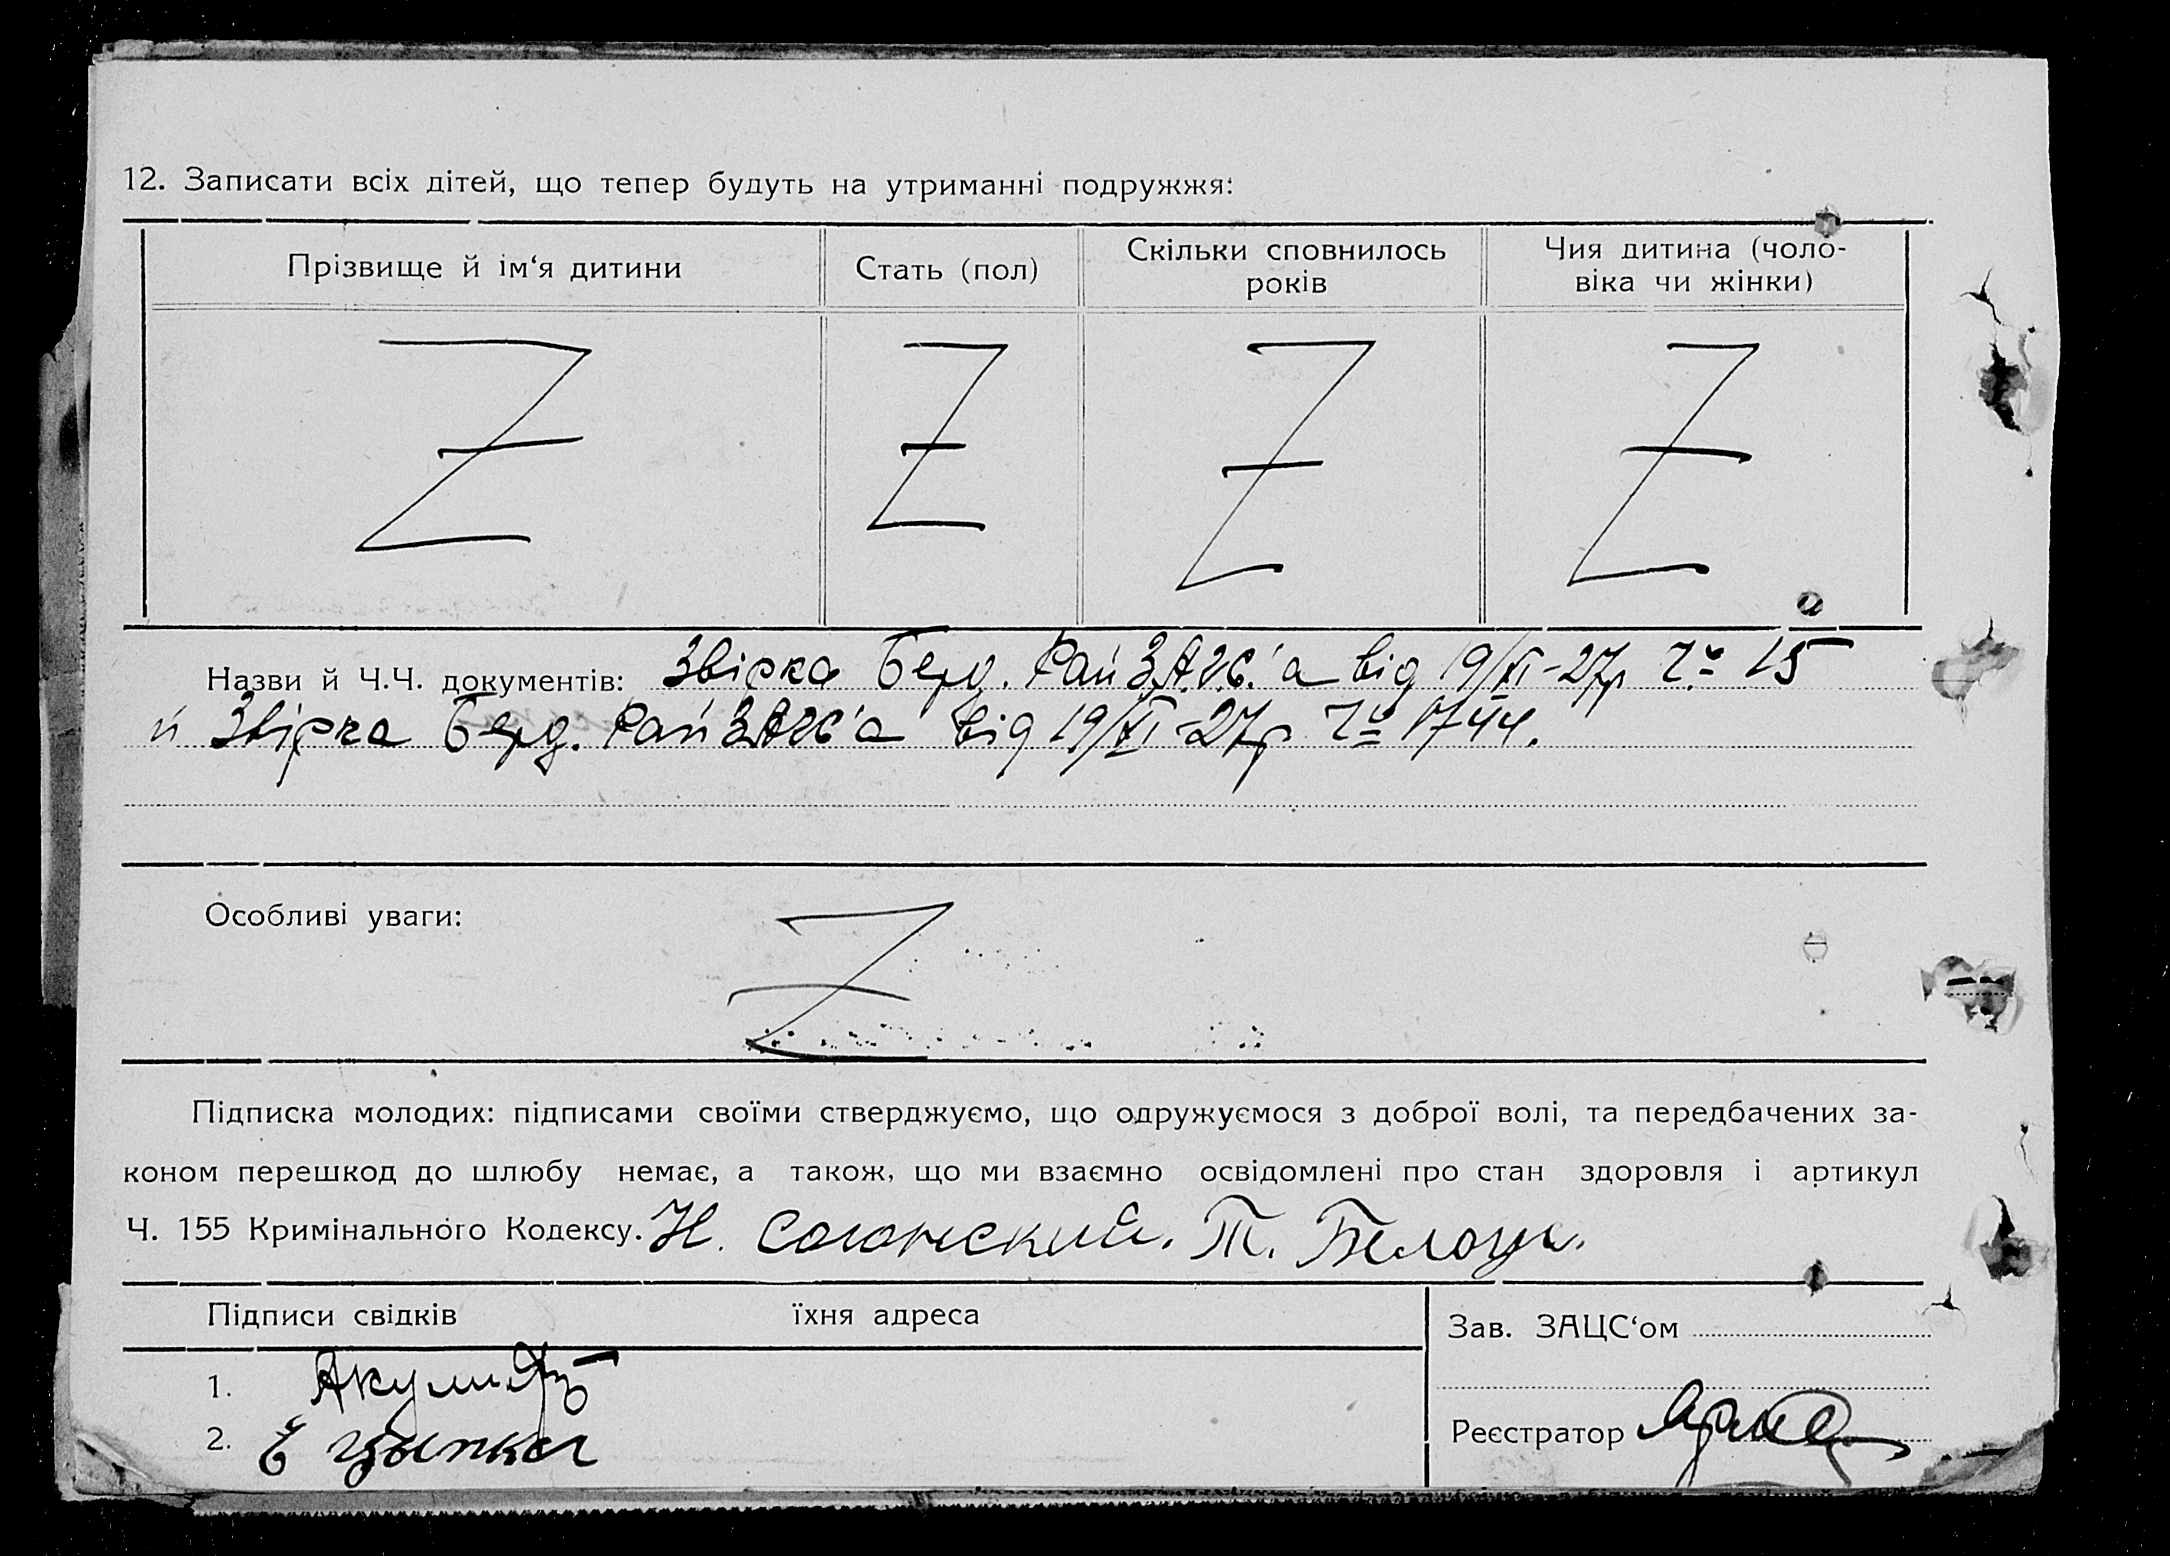 12. Записати всіх дітей, що тепер будуть на утриманні подружжя:
Прізвище й ім‘я дитини
Стать (пол)
Скільки сповнилось
років
Чия дитина (чоло-
віка чи жінки)
Z
Z
Z
Z
Назви й Ч.Ч. документів: Звірка Берд. Рай З.А.Г.С.'а від 19/XI-27р Ч. 15
й Звірка Берд. Рай ЗАГС'а від 19/XI-27р Ч. 1744.
Особливі уваги:
Z
Підписка молодих: підписами своїми стверджуємо, що одружуємося з доброї волі, та передбачених за-
коном перешкод до шлюбу немає, а також, що ми взаємно освідомлені про стан здоровля і артикул
Ч. 155 Кримінального Кодексу. Н. Т.
Підписи свідків
їхня адреса
Зав. ЗАЦС‘ом
1.
2. Е
Реєстратор